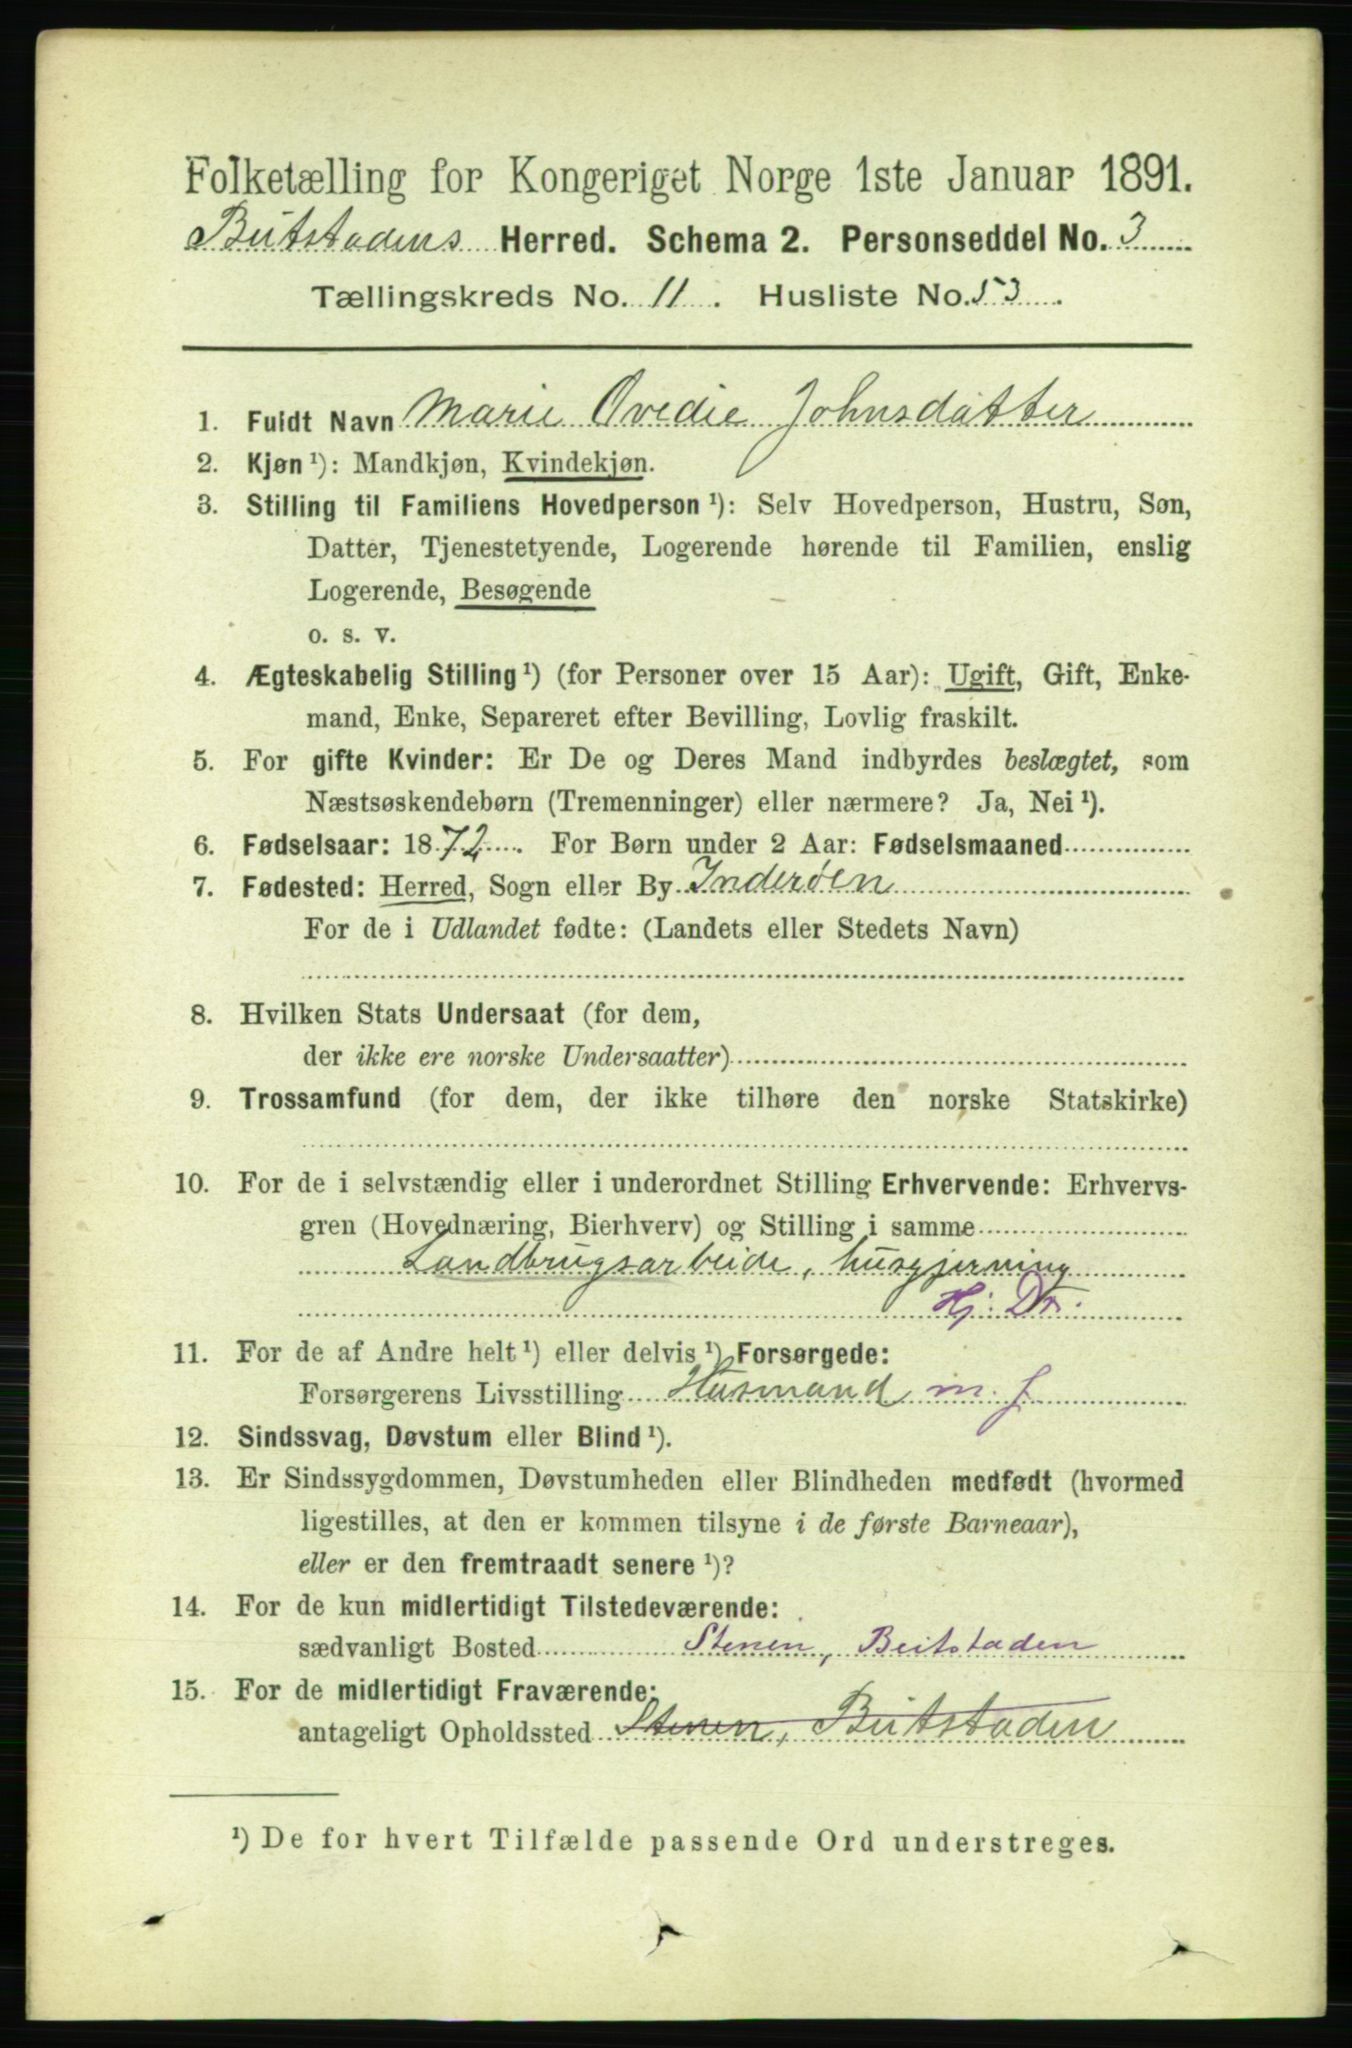 Folketælling for Kongeriget Norge 1ste Januar 1891.
Beitstadens Herred. Schema 2. Personseddel No. 3
Tællingskreds No. 11. Husliste No. 53.
1. Fuldt Navn Marie Ovedie Johnsdatter
2. Kjøn ¹): Mandkjøn, Kvindekjøn.
3. Stilling til Familiens Hovedperson ¹): Selv Hovedperson, Hustru, Søn,
Datter, Tjenestetyende, Logerende hørende til Familien, enslig
Logerende, Besøgende
o. s. v.
4. Ægteskabelig Stilling ¹) (for Personer over 15 Aar): Ugift, Gift, Enke-
mand, Enke, Separeret efter Bevilling, Lovlig fraskilt.
5. For gifte Kvinder: Er De og Deres Mand indbyrdes beslægtet, som
Næstsøskendebørn (Tremenninger) eller nærmere? Ja, Nei ¹).
6. Fødselsaar: 1872. For Børn under 2 Aar: Fødselsmaaned
7. Fødested: Herred, Sogn eller By Inderøen
For de i Udlandet fødte: (Landets eller Stedets Navn)
8. Hvilken Stats Undersaat (for dem,
der ikke ere norske Undersaatter)
9. Trossamfund (for dem, der ikke tilhøre den norske Statskirke)
10. For de i selvstændig eller i underordnet Stilling Erhvervende: Erhvervs-
gren (Hovednæring, Bierhverv) og Stilling i samme
Landbrugsarbeide, husgjerning
Hj. Dtr.
11. For de af Andre helt ¹) eller delvis ¹) Forsørgede:
Forsørgerens Livsstilling Husmand m. j.
12. Sindssvag, Døvstum eller Blind ¹).
13. Er Sindssygdommen, Døvstumheden eller Blindheden medfødt (hvormed
ligestilles, at den er kommen tilsyne i de første Barneaar),
eller er den fremtraadt senere ¹)?
14. For de kun midlertidigt Tilstedeværende:
sædvanligt Bosted Stenen, Beitstaden
15. For de midlertidigt Fraværende:
antageligt Opholdssted Stenen, Beitstaden
¹) De for hvert Tilfælde passende Ord understreges.